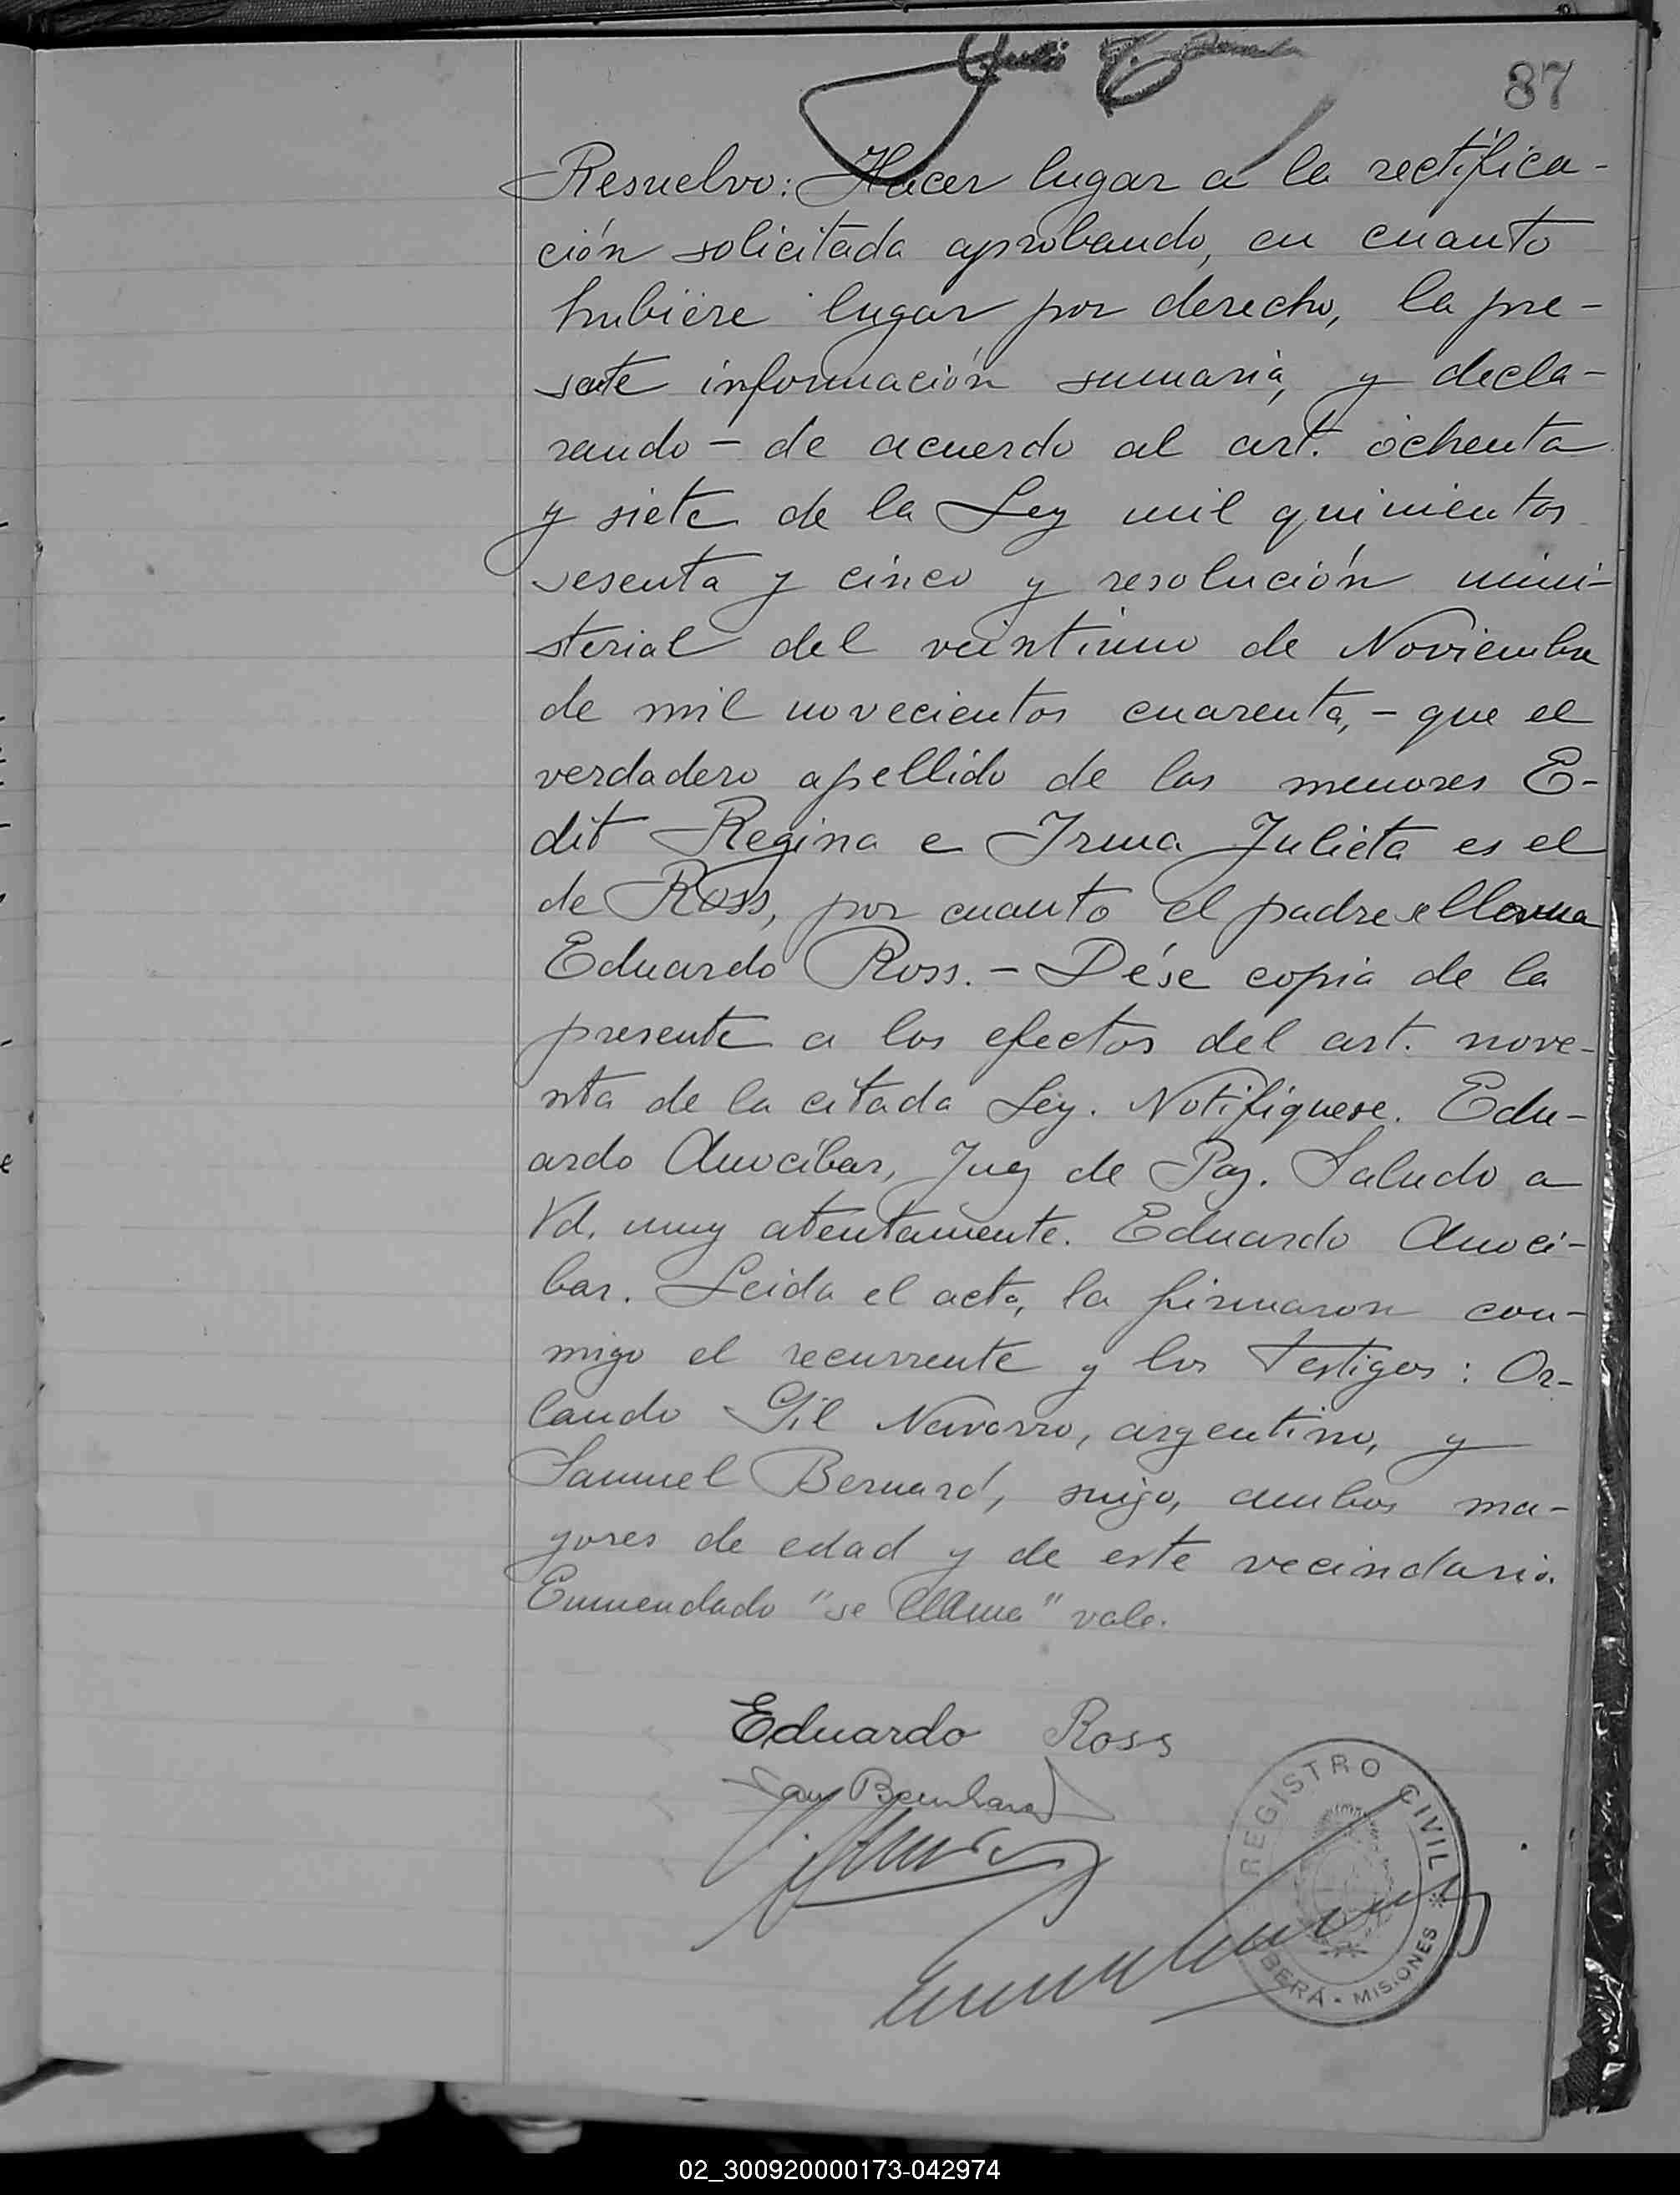 87
Resuelvo: Hacer lugar a la rectifica-
ción solicitada aprobando, en cuanto
hubiere lugar por derecho, la pre-
sente información sumaria, y decla-
rando - de acuerdo al art. ochenta
y siete de la Ley mil quinientos
sesenta y cinco y resolución mini-
sterial del veintiuno de Noviembre
de mil novecientos cuarenta, - que el
verdadero apellido de las menores E-
dit Regina e Irma Julieta es el
de Ross, por cuanto el padre se llama
Eduardo Ross. - Dése copia de la
presente a los efectos del art. nove-
nta de la citada Ley. Notifíquese. Edu-
ardo Anocíbar, Juez de Paz. Saludo a
Vd. muy atentamente. Eduardo Anocí-
bar. Leída el acta, la firmaron con-
migo el recurrente y los testigos: Or-
lando Gil Navarro, argentino, y
Samuel Bernard, suizo, ambos ma-
yores de edad y de este vecindario.
Enmendado "se llama" vale.
Eduardo Ross
Sam Bernhard
REGISTRO CIVIL
BERÁ - MISIONES
02_300920000173-042974